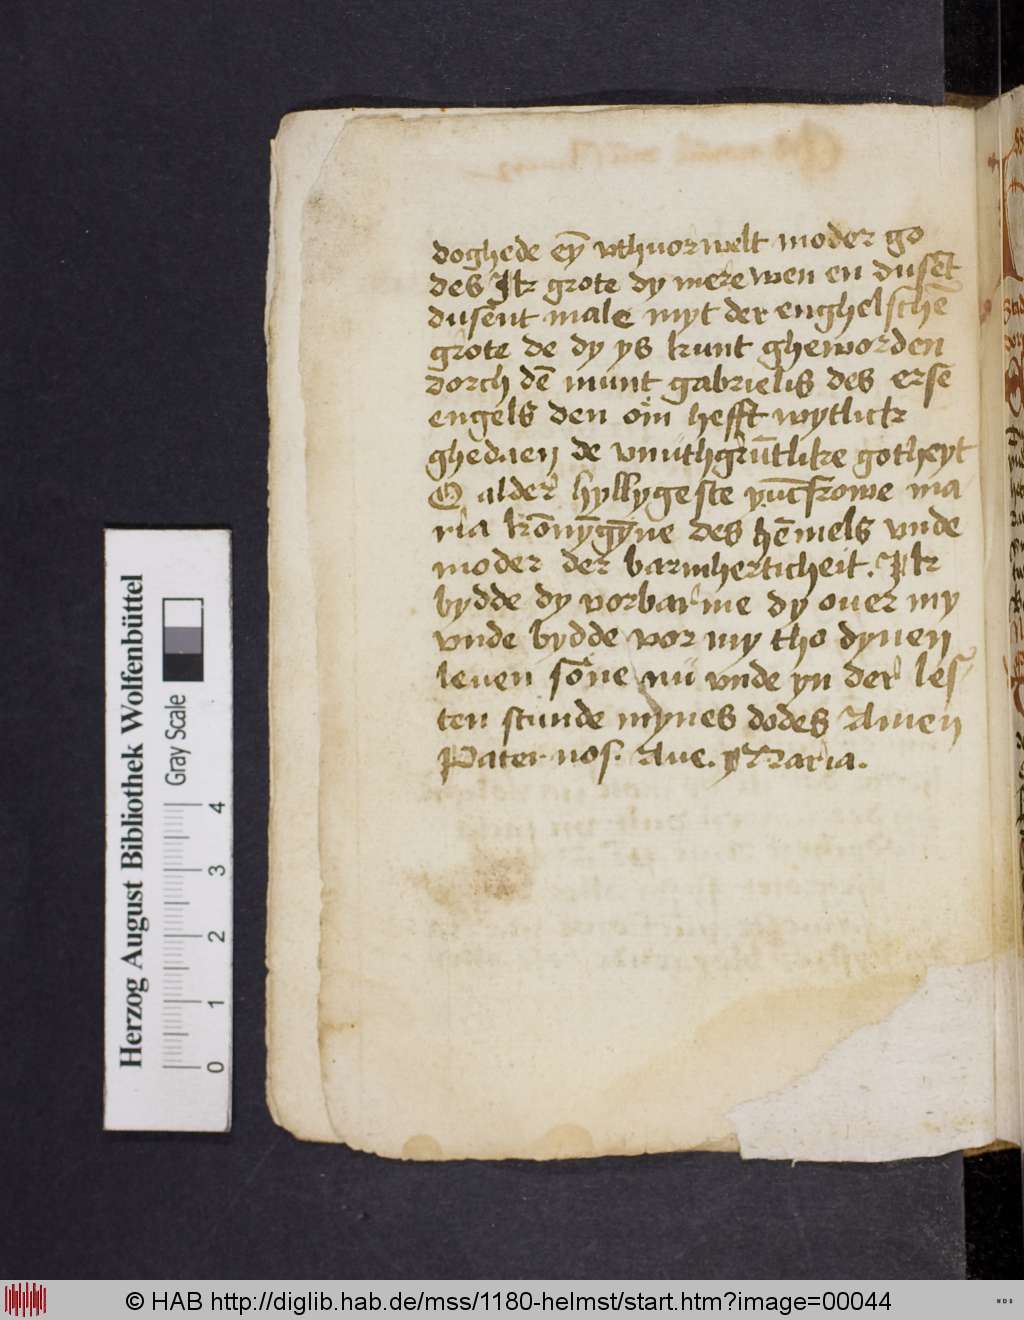 doghede eȳ vthuorwelt moder go
des Ik grote dy mere wen en dusēt
dusent male myt der enghelschē
grote de dy ys kunt gheworden
dorch dē munt gabrielis des erse
engels den om hefft wytlick
ghedaen de vnuthgrūtlike gotheyt
O alder hyllygeste yūcfrowe ma
ria kōnyȳgyne des hēmels vnde
moder der barmherticheit. Ik
bydde dy vorbarme dy ouer my
vnde bydde vor my tho dynen
leuen sone nu vnde yn der les
ten stunde mynes dodes Amen
Pater nos. Aue. Maria.
Herzog August Bibliothek Wolfenbüttel
Gray Scale
0 1 2 3 4
© HAB http://diglib.hab.de/mss/1180-helmst/start.htm?image=00044